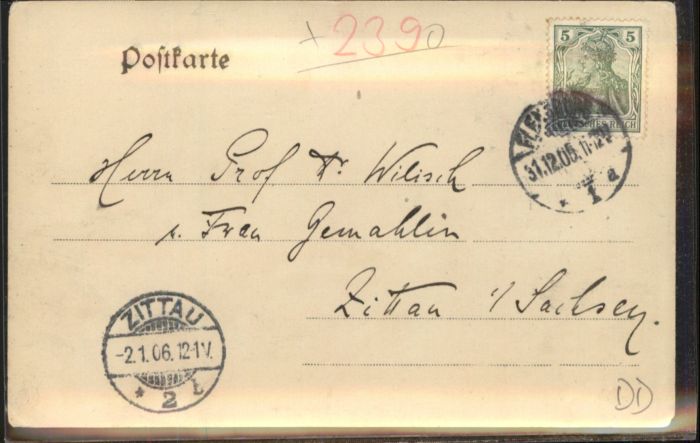 + 2390
5 5
Postkarte
DEUTSCHES REICH
31.12.05. 11-12
* 1 a
Herrn Prof Dr. Wilisch
u. Frau Gemahlin
Zittau i/Sachsen.
ZITTAU
-2.1.06.12-1V.
* 2 b
DD